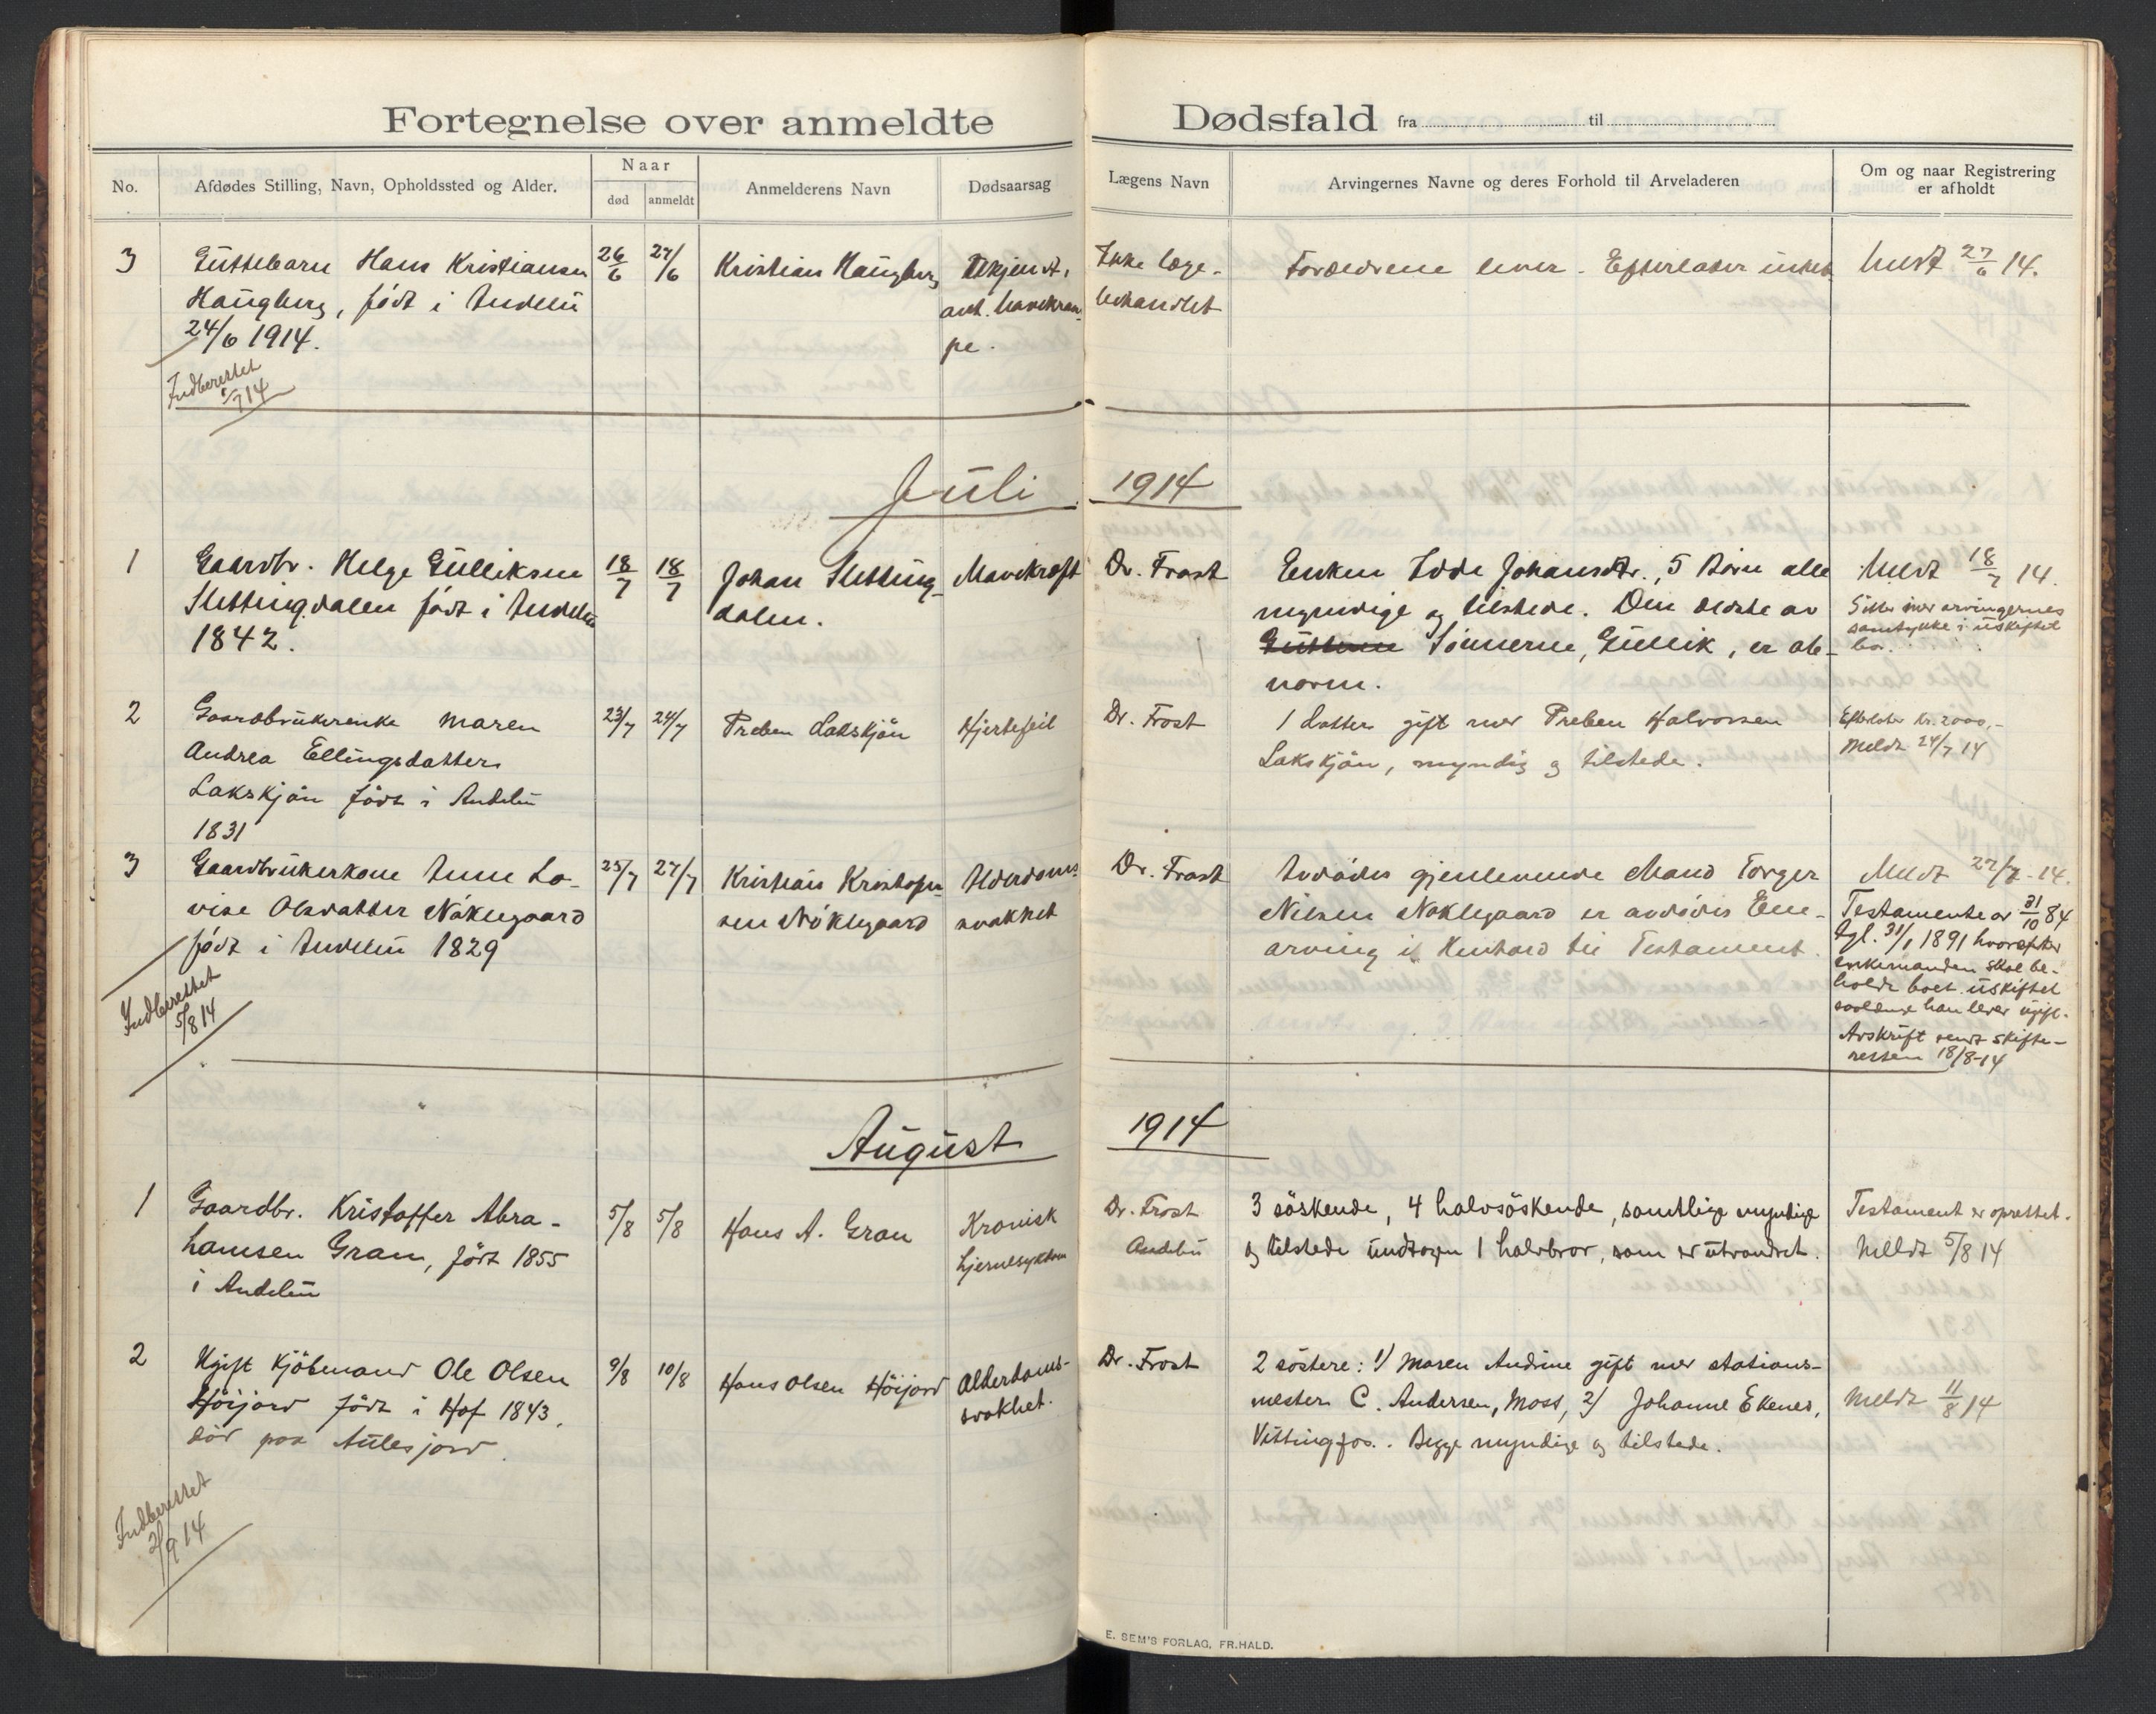 Fortegnelse over anmeldte Dødsfald fra til
No.
Afdødes Stilling, Navn, Opholdssted og Alder.
Naar
død
anmeldt
Anmelderens Navn
Dødsaarsag
Lægens Navn
Arvingernes Navne og deres Forhold til Arveladeren
Om og naar Registrering
er afholdt
3
Guttebarn Hans Kristiansen
Haugberg, født i Andebu
24/6 1914.
26/6
27/6
Kristian Haugberg
Ukjendt,
ant. mavekram-
pe.
Ikke læge-
behandlet
Forældrene lever. Efterlader intet
Meldt 27/6 14.
Indberettet
1/7 14
Juli 1914
1
Gaardbr. Helge Gulliksen
Slettingdalen født i Andebu
1842.
18/7
18/7
Johan Sletting-
dalen.
Mavekræft
Dr. Frost
Enken Idde Johansdtr., 5 Børn alle
myndige og tilstede. Den ældste av
Guttene Sønnerne, Gullik, er ab-
norm.
Meldt 18/7 14.
Sitter med arvingernes
samtykke i uskiftet
bo.
2
Gaardbrukerenke Maren
Andrea Ellingsdatter
Lakskjøn født i Andebu
1831
23/7
24/7
Preben Lakskjøn
Hjertefeil
Dr. Frost
1 datter gift med Preben Halvorsen
Lakskjøn, myndig og tilstede.
Efterlater kr. 2000,-
Meldt 24/7 14
3
Gaardbrukerkone Anne Lo-
vise Olsdatter Nøklegaard
født i Andebu 1829
25/7
27/7
Kristian Kristofer-
sen Nøklegaard
Alderdoms-
svakhet
Dr. Frost
Avdødes gjenlevende Mand Torger
Nilsen Nøklegaard er avdødes Ene-
arving i Henhold til Testament.
Meldt 27/7-14.
Testamente av 31/10 84
tgl. 31/1 1891 hvorefter
enkemanden skal be-
holde boet uskiftet
saalænge han lever ugift.
Avskrift sendt skifte-
retten 18/8-14
Indberettet
5/8 14
August 1914
1
Gaardbr. Kristoffer Abra-
hamsen Gran, født 1855
i Andebu
5/8
5/8
Hans A. Gran
Kronisk
hjernesykdom
Dr. Frost
Andebu
3 söskende, 4 halvsöskende, samtlige myndige
og tilstede undtagen 1 halvbror, som er utvandret.
Testament er oprettet.
Meldt 5/8 14
2
Ugift Kjöbmand Ole Olsen
Höijord födt i Hof 1843,
död paa Aulesjord.
9/8
10/8
Hans Olsen Höijord
Alderdoms-
svakhet.
Dr. Frost
2 söstere: 1) Maren Andrine gift med stations-
mester C. Andersen, Moss, 2) Johanne Ekenes,
Vittingfos. Begge myndige og tilstede.
Meldt 11/8 14
Indberettet
2/9 14
E. SEM'S FORLAG, FR.HALD.